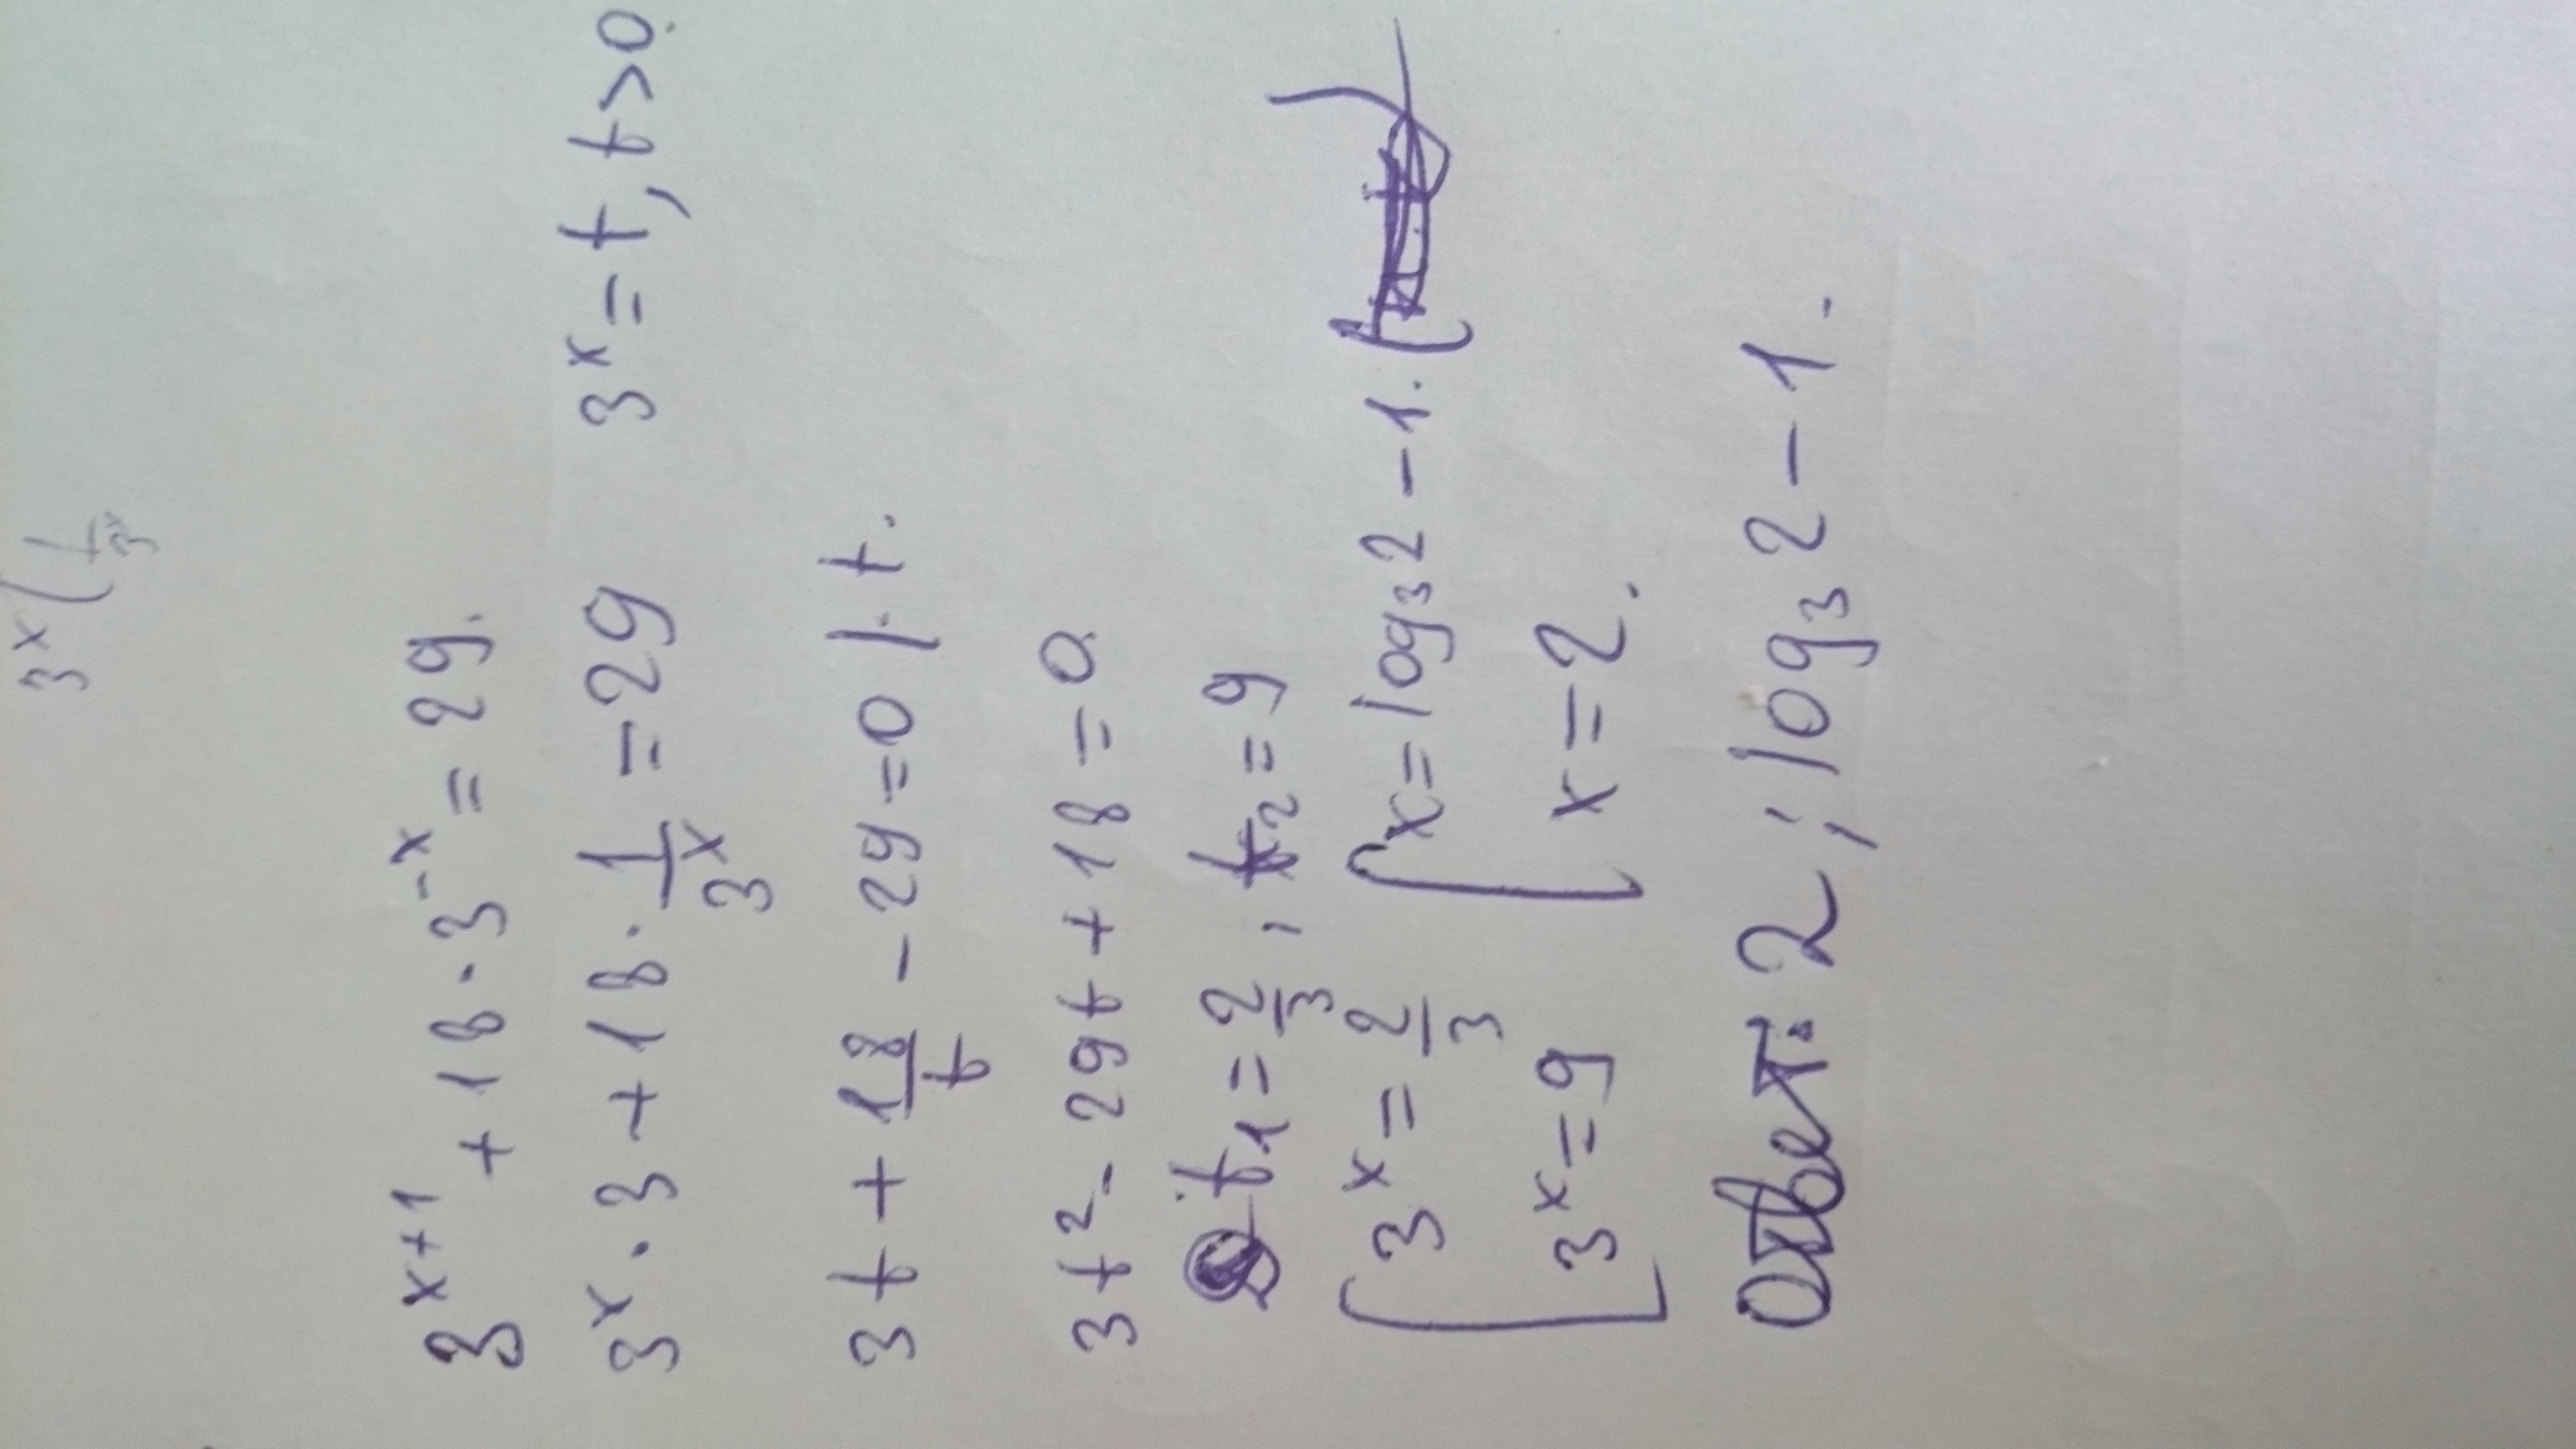 3^x (1/3^x
3^{x+1} + 18 · 3^{-x} = 29.
3^x · 3 + 18 · 1/3^x = 29    3^x = t, t > 0.
3t + 18/t - 29 = 0 | · t.
3t² - 29t + 18 = 0.
t₁ = 2/3, t₂ = 9
[ 3^x = 2/3    [ x = log₃2 - 1.
3^x = 9    x = 2.
Ответ: 2; log₃2 - 1.